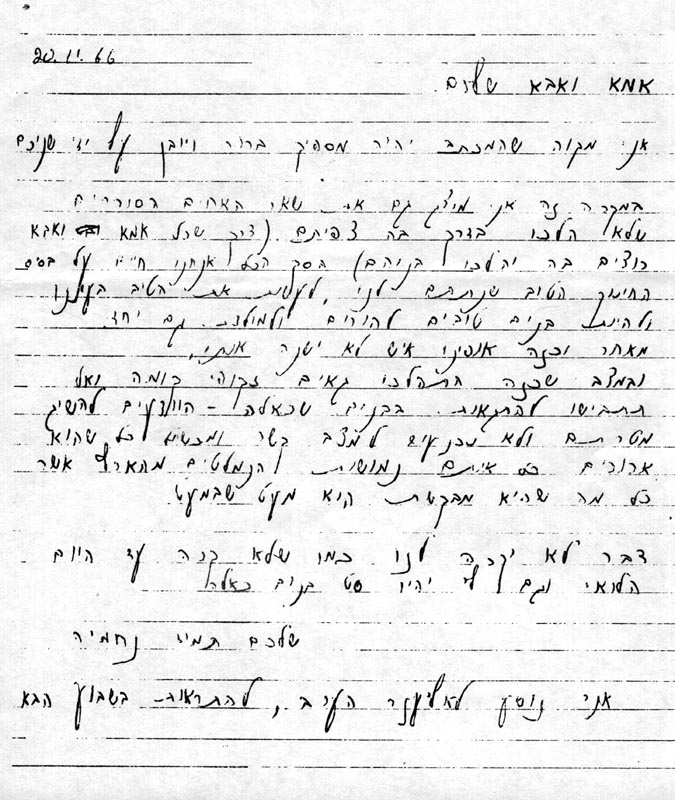 20.11.66
אמא ואבא שלום
אני מקוה שהמכתב יהיה מספיק ברור ויובן על ידי שניכם
במקרה זה אני מיצג גם את שאר האחים הסוררים
שלא הלכו בדרך בה צפיתם (דרך שכל אמא ואבא
רוצים בה ילכו בניהם) בסך הכל אנחנו חיינו על בסיס
החינוך הטוב שנתתם לנו, לעשות את הטוב בעינינו
ולהיות בנים טובים להורים ולמולדת גם יחד
מאחר וכזה אופינו איש לא ישנה אותנו.
ובמצב שכזה תתהלכו גאים זקופי קומה ואל
תתבישו להתגאות בבנים שכאלה - היודעים להשיג
מטרתם ולא נכנעים למצב קשר ומכשול כל שהוא
ארורים כל אותם נמושות הנמלטים מהארץ אשר
כל מה שהיא מבקשת הוא מעט שבמעט
דבר לא יקרה לנו כמו שלא קרה עד היום
הלואי וגם לי יהיו סט בנים כאלה
שלכם תמיד נחמיה
אני נוסע הערב, להתראות בשבוע הבא